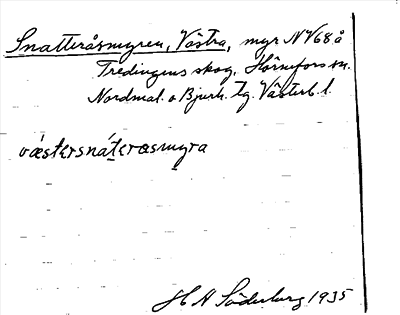 Snatteråsmyren, Västra, myr NV68å
Tredingens skog, Hörnefors sn.
Nordmal. o Bjurh. tg. Västerb. l.
västersnáterasmyra
H A Söderberg 1935